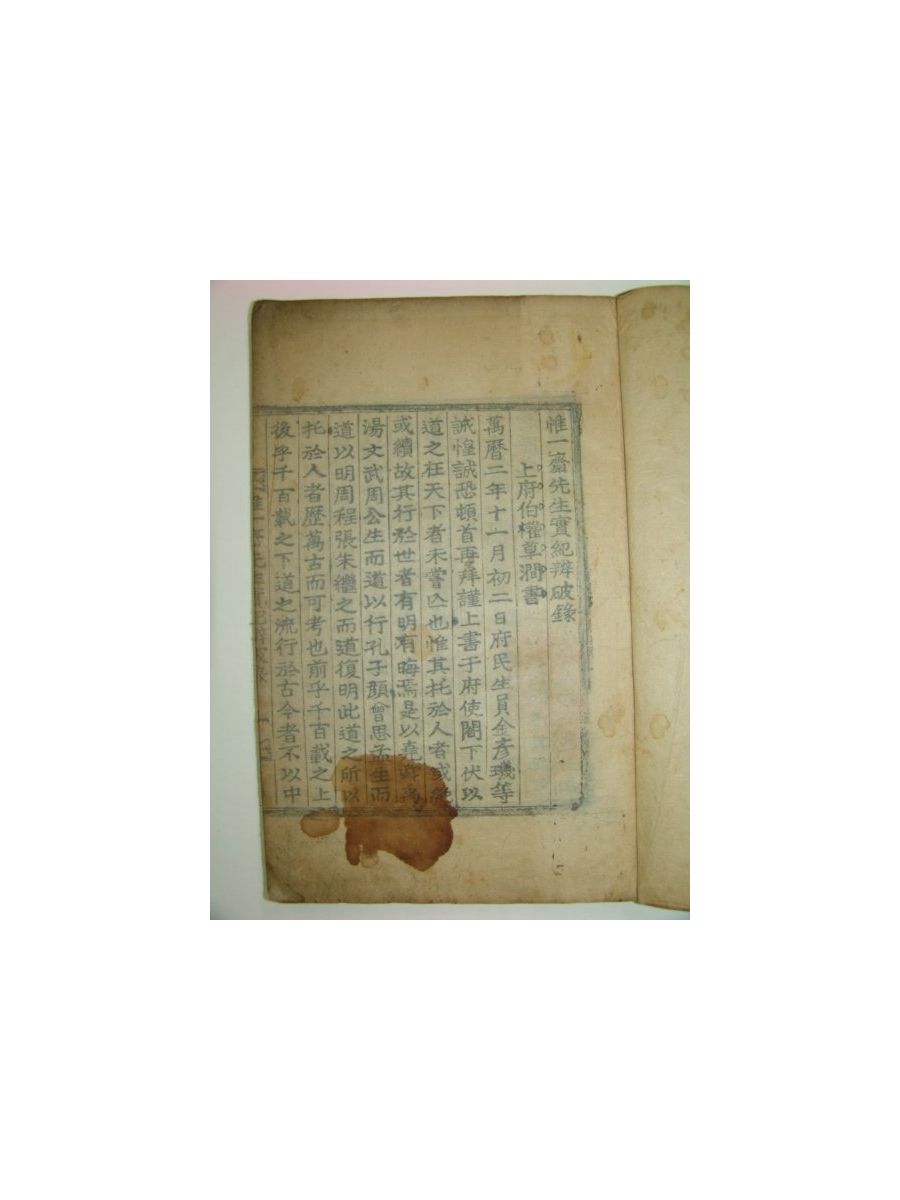 惟一齋先生實紀辨破錄
上府伯權草澗書
萬曆二年十一月初二日府民生員金彥璣等
誠惶誠恐頓首再拜謹上書于府使閤下伏以
道之在天下者未嘗亡也惟其托於人者或絶
或續故其行於世者有明有晦焉是以堯舜禹
湯文武周公生而道以行孔子顔曾思孟生而
道以明周程張朱繼之而道復明此道之所以
托於人者歷萬古而可考也前乎千百載之上
後乎千百載之下道之流行於古今者不以中
惟一齋先生實紀辨破錄 一